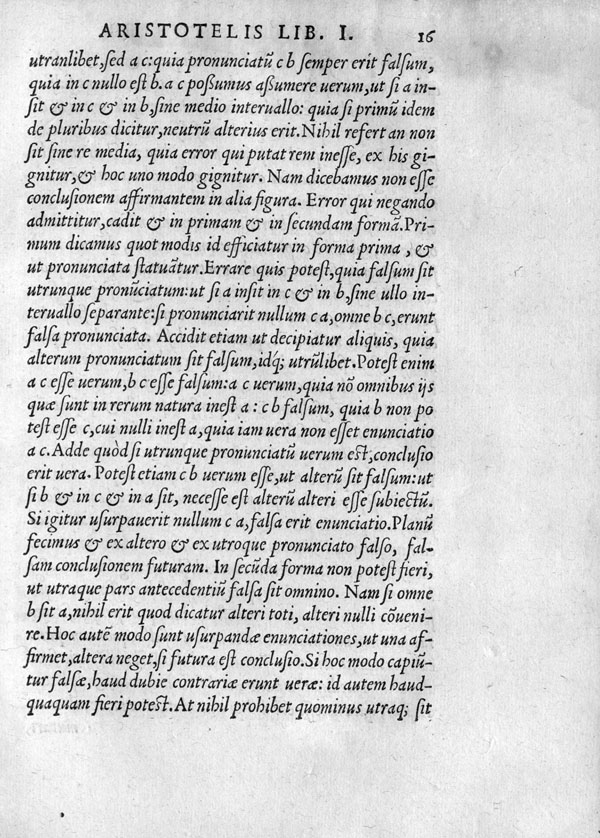 ARISTOTELIS LIB. I. 16
utranlibet, sed a c: quia pronunciatū c b semper erit falsum,
quia in c nullo est b. a c poßumus aßumere uerum, ut si a in-
sit & in c & in b, sine medio interuallo: quia si primū idem
de pluribus dicitur, neutrū alterius erit. Nihil refert an non
sit sine re media, quia error qui putat rem inesse, ex his gi-
gnitur, & hoc uno modo gignitur. Nam dicebamus non esse
conclusionem affirmantem in alia figura. Error qui negando
admittitur, cadit & in primam & in secundam formā. Pri-
mum dicamus quot modis id efficiatur in forma prima, &
ut pronunciata statuātur. Errare quis potest, quia falsum sit
utrunque pronūciatum: ut si a insit in c & in b, sine ullo in-
teruallo separante: si pronunciarit nullum c a, omne b c, erunt
falsa pronunciata. Accidit etiam ut decipiatur aliquis, quia
alterum pronunciatum sit falsum, idq́; utrūlibet. Potest enim
a c esse uerum, b c esse falsum: a c uerum, quia nō omnibus ijs
quæ sunt in rerum natura inest a: c b falsum, quia b non po
test esse c, cui nulli inest a, quia iam uera non esset enunciatio
a c. Adde quòd si utrunque pronunciatū uerum est, conclusio
erit uera. Potest etiam c b uerum esse, ut alterū sit falsum: ut
si b & in c & in a sit, necesse est alterū alteri esse subiectū.
Si igitur usurpauerit nullum c a, falsa erit enunciatio. Planū
fecimus & ex altero & ex utroque pronunciato falso, fal-
sam conclusionem futuram. In secūda forma non potest fieri,
ut utraque pars antecedentiū falsa sit omnino. Nam si omne
b sit a, nihil erit quod dicatur alteri toti, alteri nulli cōueni-
re. Hoc autē modo sunt usurpandæ enunciationes, ut una af-
firmet, altera neget, si futura est conclusio. Si hoc modo capiū-
tur falsæ, haud dubie contrariæ erunt ueræ: id autem haud-
quaquam fieri potest. At nihil prohibet quominus utraq; sit